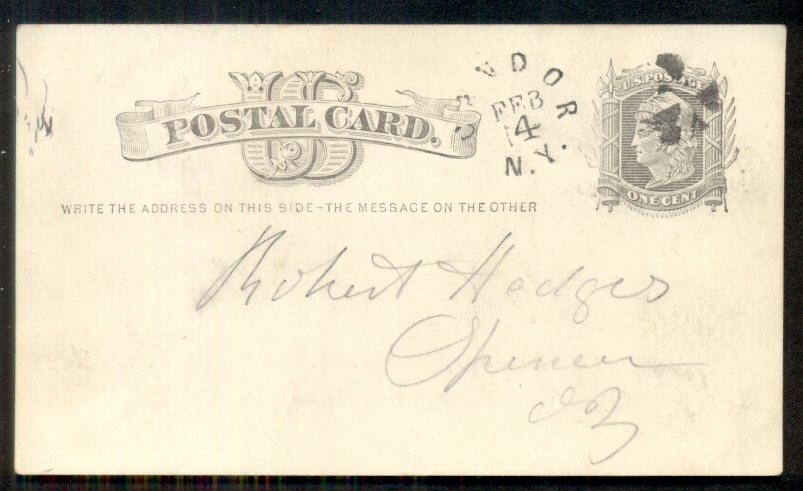 U.S. POSTAGE
POSTAL CARD.
US
FEB
4
N.Y.
ONE CENT
WRITE THE ADDRESS ON THIS SIDE-THE MESSAGE ON THE OTHER
Robert Hedges
Spencer